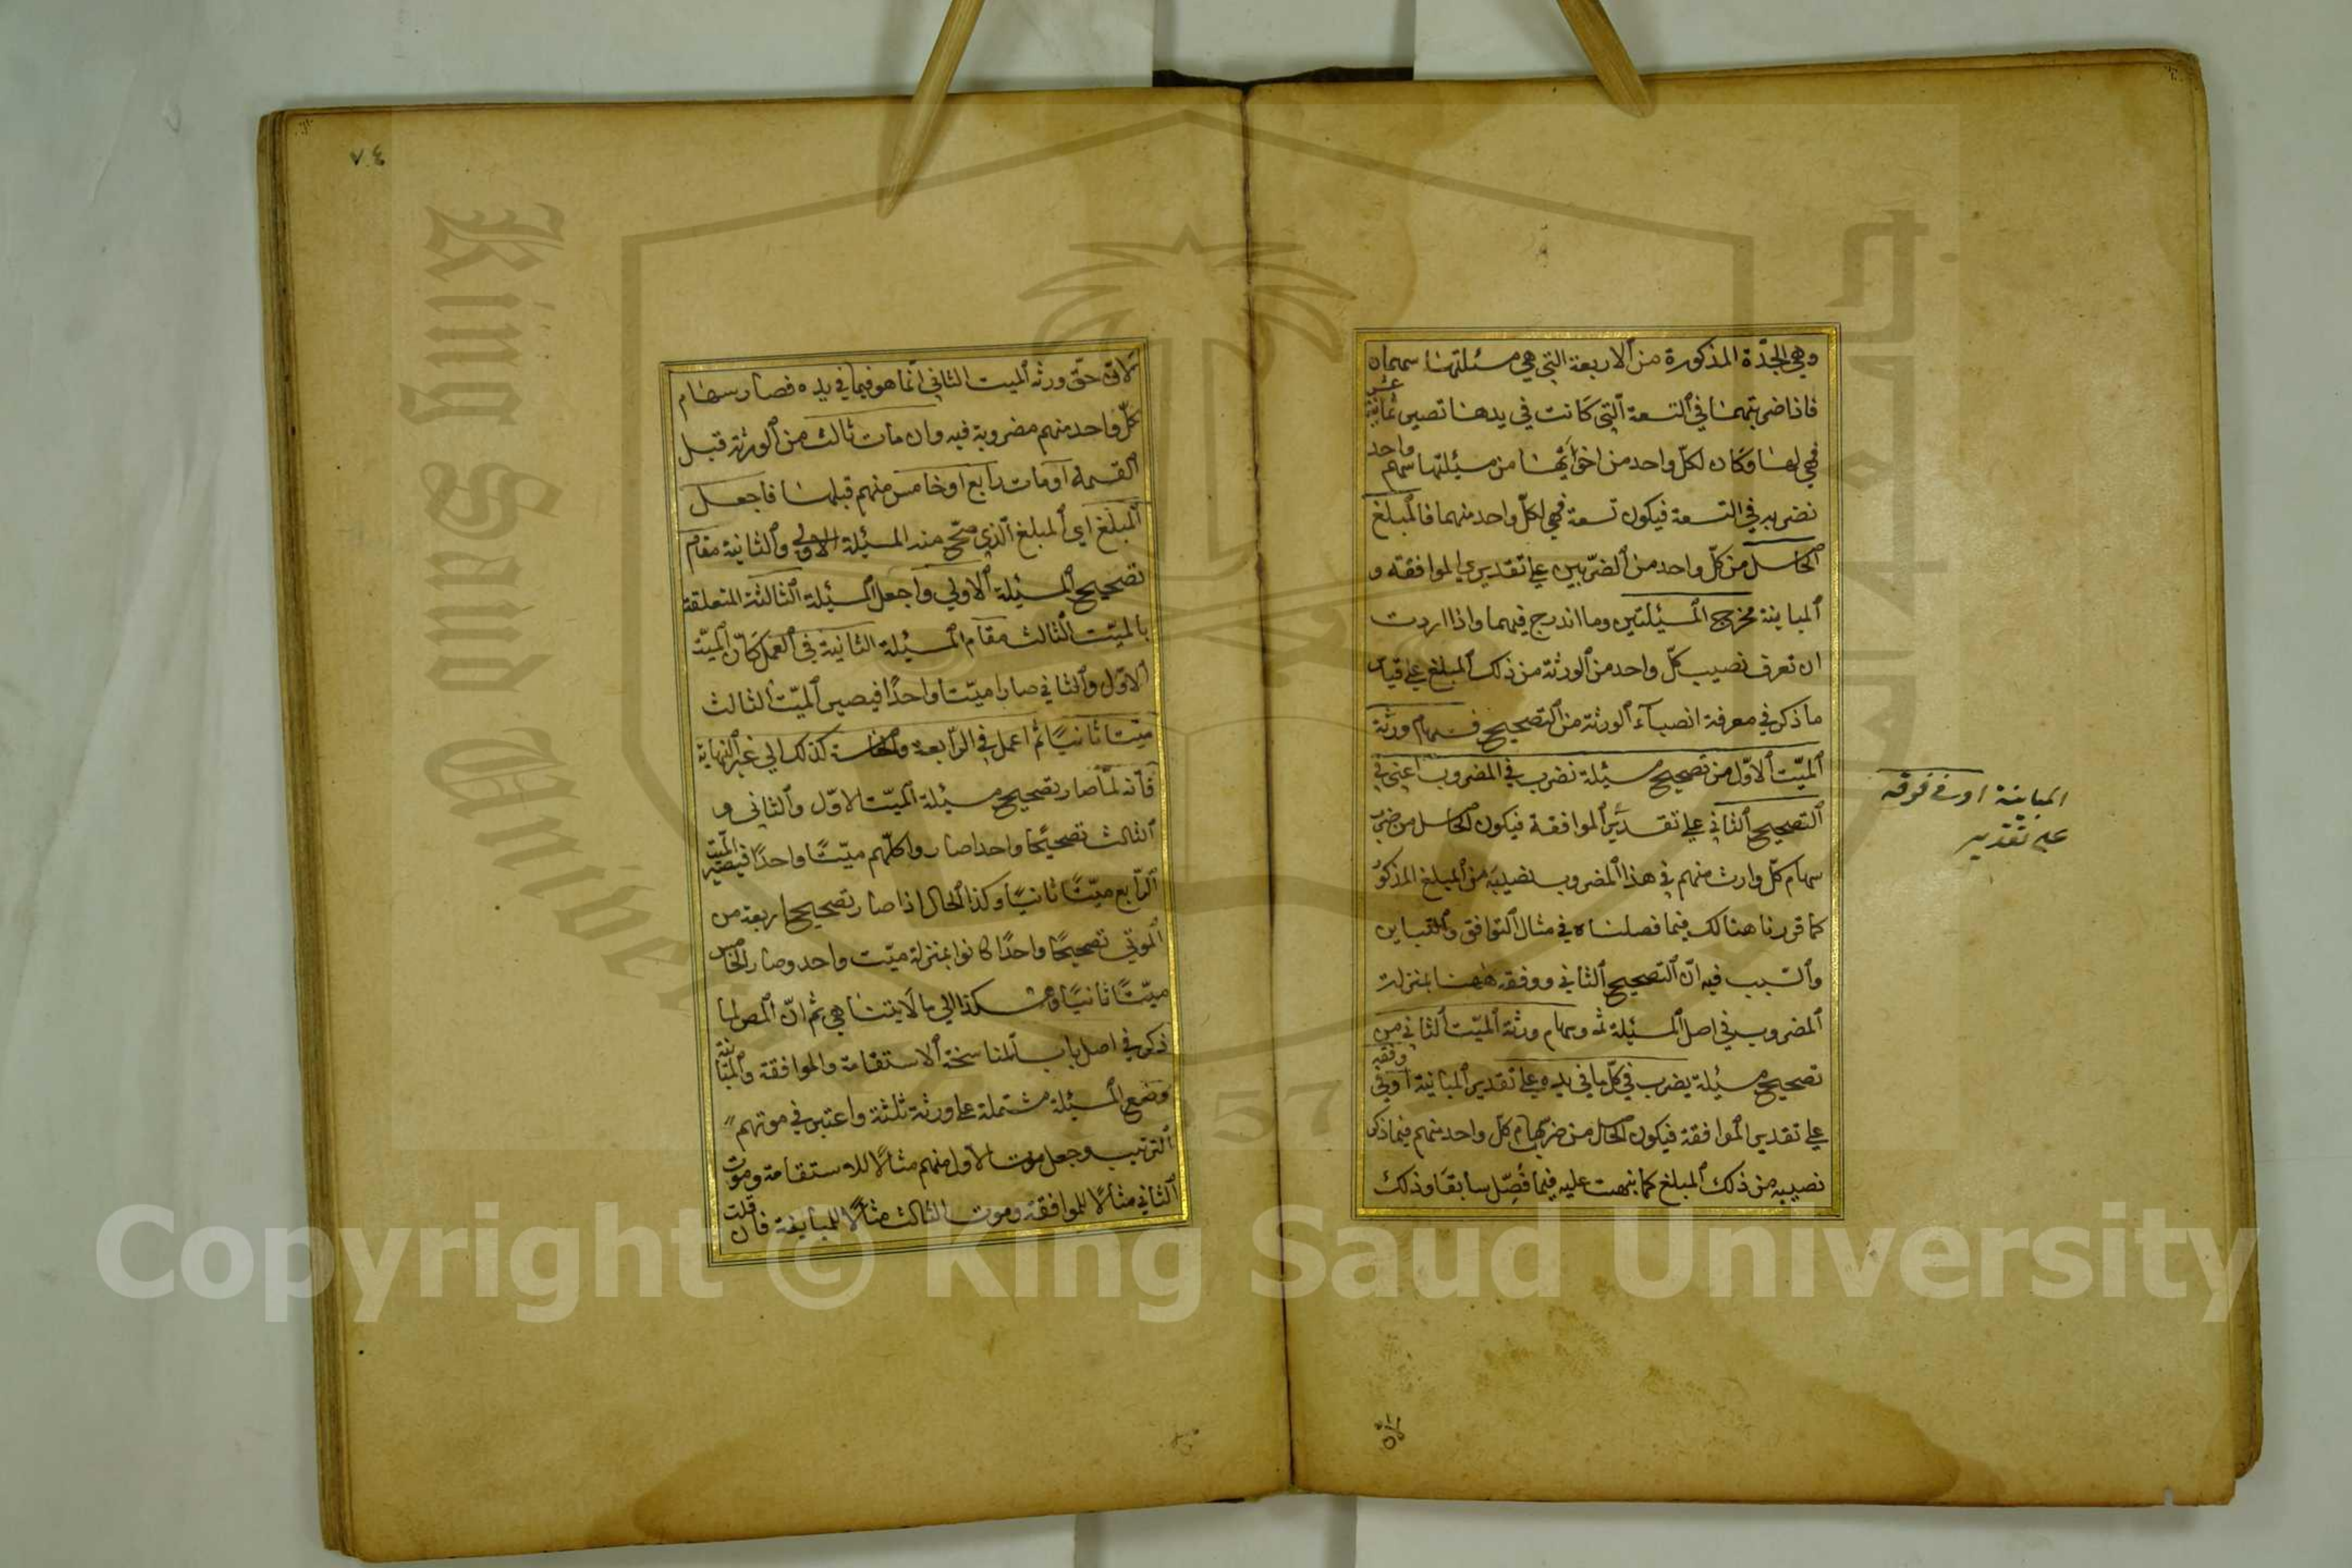 وهي الجدّة المذكورة من الاربعة التي هي مسئلتها سهمان
فاذا ضربتهما في التسعة التي كانت في يدها تصير ثمانية عشر
فهي لها وكان لكلّ واحد من اخوانها من مسئلتها سهم واحد
نضربه في التسعة فيكون تسعة فهي لكلّ واحد منهما فالمبلغ
الحاصل من كلّ واحد من الضربين على تقديري الموافقة و
المباينة مخرج المسئلتين وما اندرج فيهما واذا اردت
ان تعرف نصيب كلّ واحد من الورثة من ذلك المبلغ على قياس
ما ذكر في معرفة انصبآء الورثة من التصحيح فسهام ورثة
الميّت الاوّل من تصحيح مسئلة تضرب في المضروب اعني في
التصحيح الثاني على تقدير الموافقة فيكون الحاصل من ضرب
سهام كلّ وارث منهم في هذا المضروب نصيبه من المبلغ المذكور
كما قررنا هنالك فيما فصلناه في مثال التوافق والتباين
والسبب فيه انّ التصحيح الثاني ووفقه ههنا بمنزلة
المضروب في اصل المسئلة ثمه وسهام ورثة الميّت الثاني من
تصحيح مسئلة يضرب في كلّ ما في يده على تقدير المباينة او في وفقه
على تقدير الموافقة فيكون الحاصل من ضرب سهام كلّ واحد منهم فيما ذكر
نصيبه من ذلك المبلغ كما نبهت عليه فيما فُصّل سابقا وذلك
المباينة او في فوقه
على تقدير
٧٤
لانّ حقّ ورثة الميت الثاني انّما هو فيما في يده فصار سهام
كلّ واحد منهم مضروبة فيه وان مات ثالث من الورثة قبل
القسمة او مات رابع او خامس منهم قبلها فاجعل
المبلغ اي المبلغ الذي صحّ منه المسئلة الاولى والثانية مقام
تصحيح المسئلة الاولي واجعل المسئلة الثالثة المتعلقة
بالميّت الثالث مقام المسئلة الثانية في العمل كانّ الميّت
الاوّل والثاني صارا ميّتا واحدًا فيصير الميّت الثالث
ميّتا ثانيًا ثم اعمل في الرابعة والخامسة كذلك الي غير النهاية
فانه لمّا صار تصحيح مسئلة الميّت الاوّل والثاني و
الثالث تصحيحًا واحدا صاروا كلّهم ميّتًا واحدًا فيصير الميّت
الرّابع ميّتًا ثانيًا وكذا الحال اذا صار تصحيح اربعة من
الموتي تصحيحًا واحدًا كانوا بمنزلة ميّت واحد وصار الخامس
ميّتًا ثانيًا وهكذا الي ما لا يتناهي ثم انّ المص لما
ذكر في اصل باب المناسخة الاستقامة والموافقة والمباينة
وضع المسئلة مشتملة على ورثة ثلثة واعتبر في موتهم
الترتيب وجعل موت الاوّل منهم مثالًا للاستقامة وموت
الثاني مثالًا للموافقة وموت الثالث مثالًا للمباينة فان قلت
King Saud Univer
1957
Copyright © King Saud University